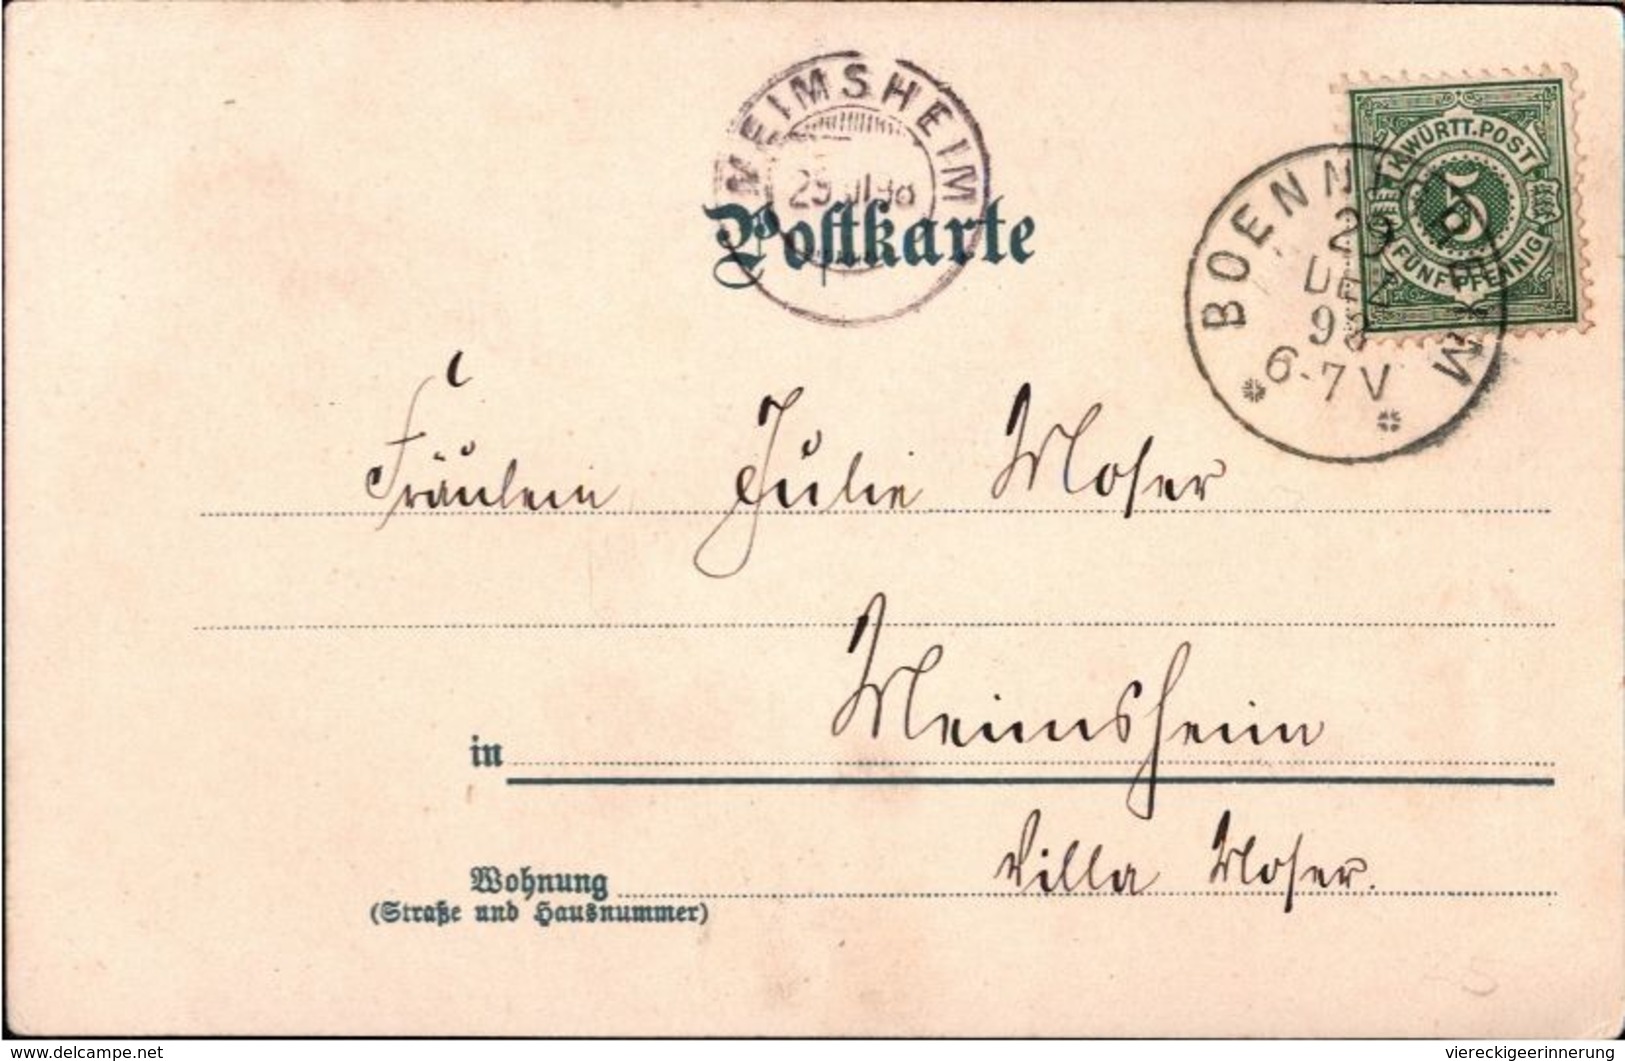 MEIMSHEIM
Postkarte
K.WÜRTT.POST
5
FÜNF PFENNIG
BOENNIGHEIM
29
DEZ
98
6-7 V
Fräulein Julie Moser
in Meimsheim
Wohnung Villa Moser.
(Straße und Hausnummer)
www.delcampe.net
viereckigeerinnerung